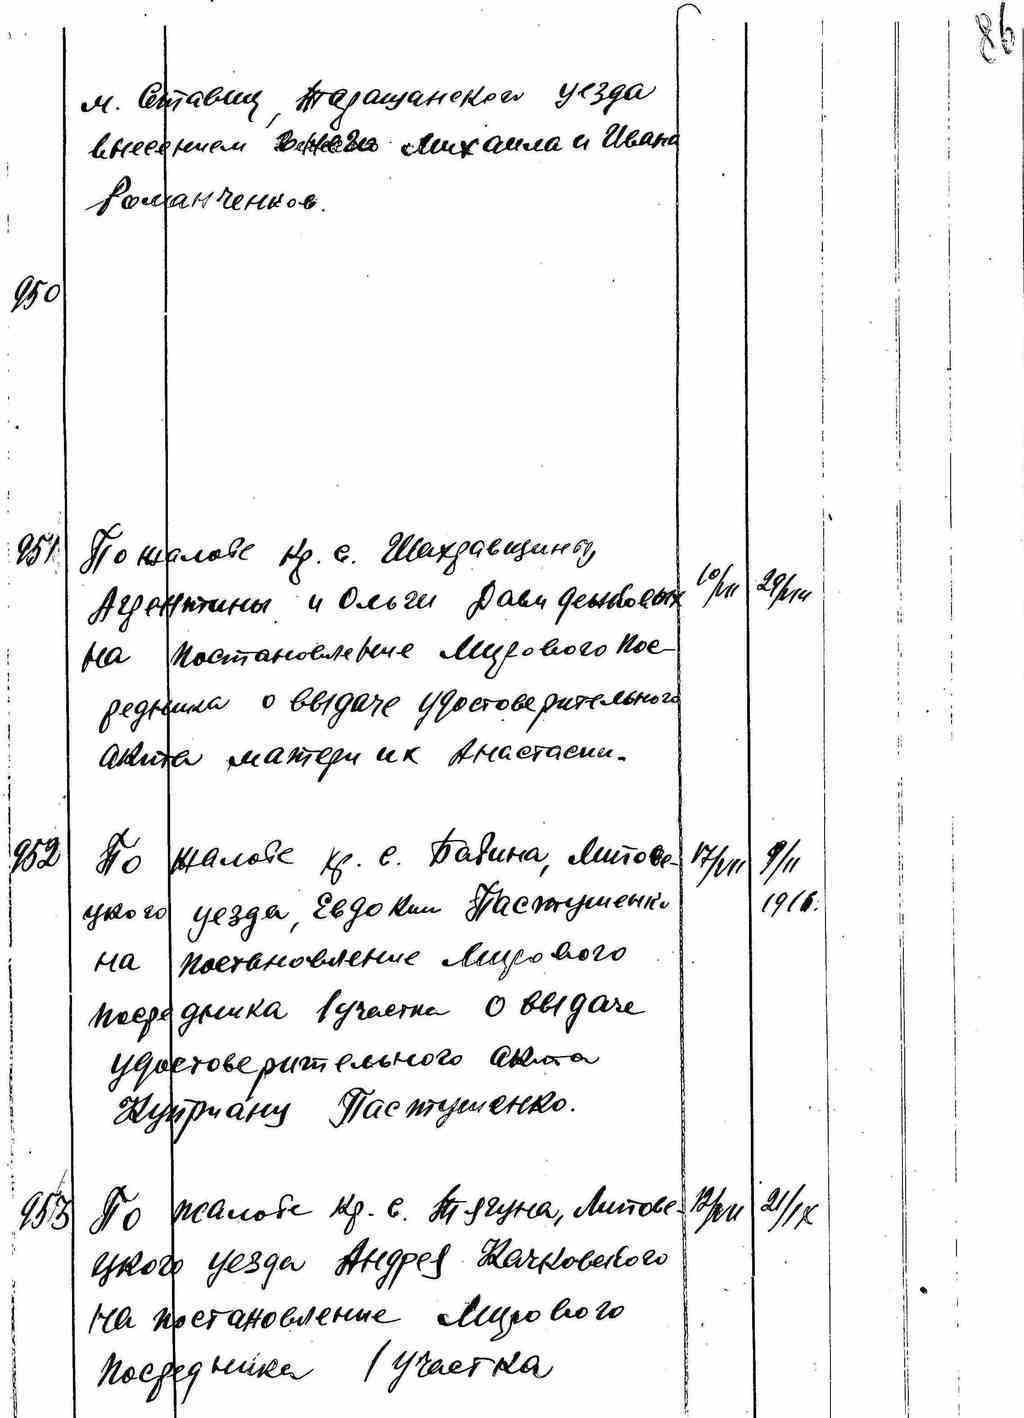 86
м. Ставищ, Таращанского уезда
внесением Михаила и Ивана
Романченков.
950
951 По жалобе кр. с. Шахравщины
и Ольги Давиденковых 10/VII 29/VIII
на постановление Мирового Пос-
редника о выдаче удостоверительного
акта матери их Анастасии.
952 По жалобе кр. с. Бабина, Липове- 17/VII 9/II
цкого уезда, Евдокии Пастушенко 1916.
на постановление Мирового
посредника 1 участка о выдаче
удостоверительного акта
Куприану Пастушенко.
953 По жалобе кр. с. Тягуна, Липове- 12/VII 21/IX
цкого уезда Андрея Качковского
на постановление Мирового
посредника 1 участка